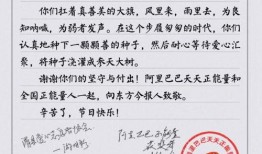 你们扛着真善美的大旗，风里来，雨里去，为良
知呐喊，为弱者发声。在这个步履匆匆的时代，你们
认真地种下一颗颗善的种子，然后耐心等待爱心汇
聚，将种子浇灌成参天大树。
谢谢你们的坚守与付出！阿里巴巴天天正能量和
全国正能量人一起，向东方今报人致敬。
辛苦了，节日快乐！
阿里巴巴天天正能量